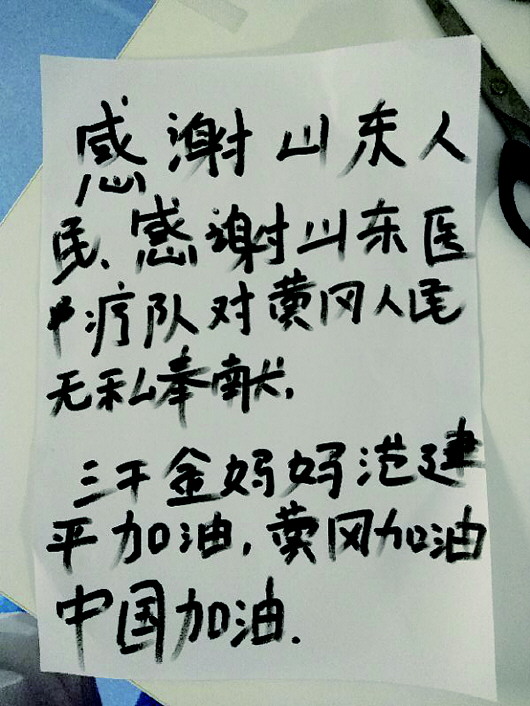 感谢山东人
民、感谢山东医
疗队对黄冈人民
无私奉献,
三千金妈妈范建
平加油,黄冈加油
中国加油.